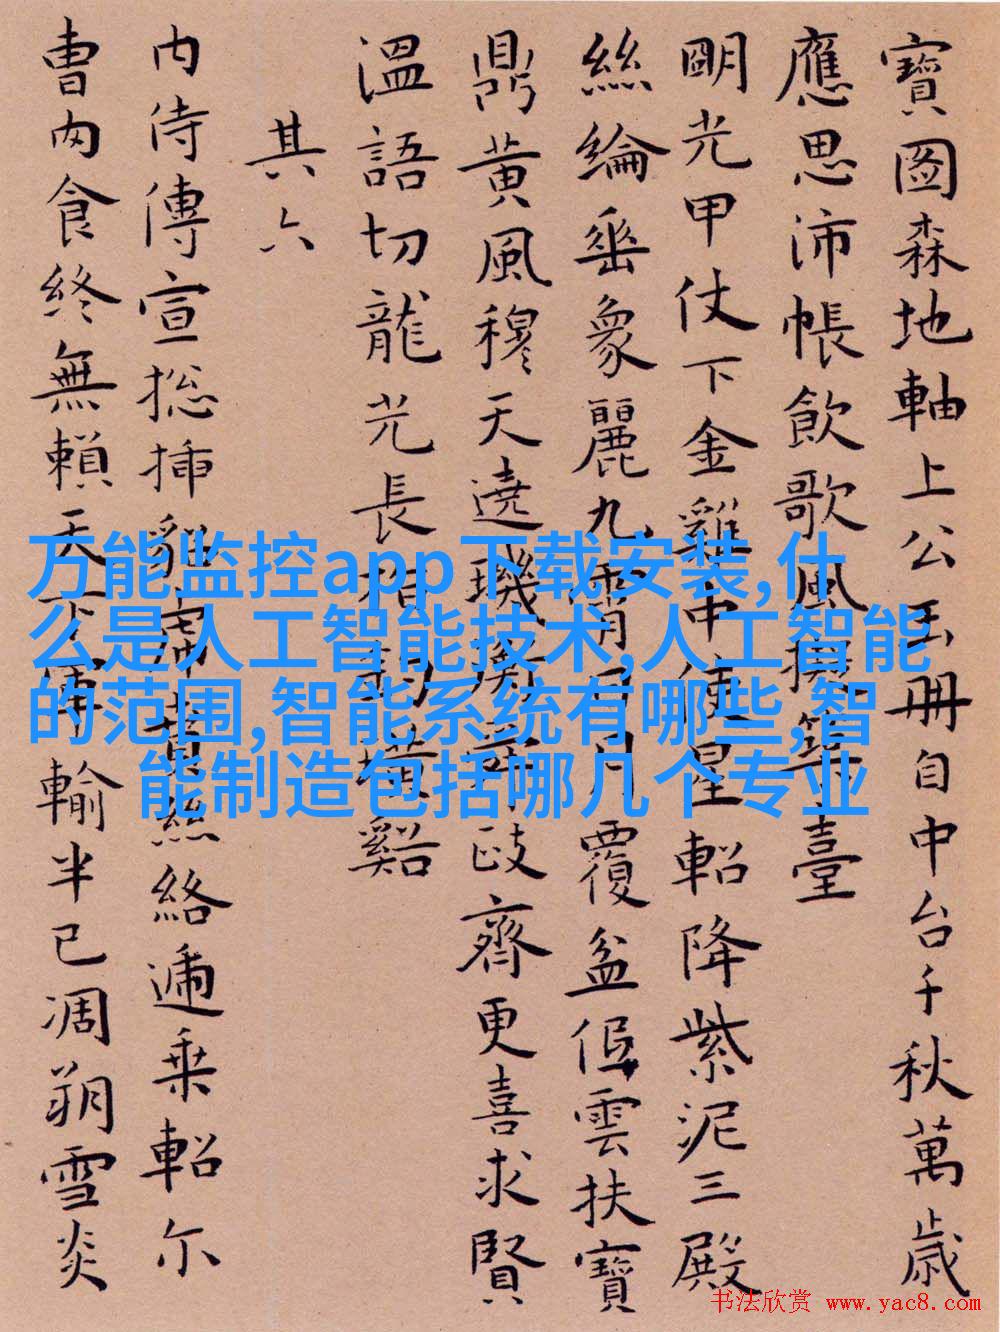 寶圖森地軸上公玉冊自中台千秋萬歲
應思沛帳飲歌風築臺
朙光甲仗下金雞中使星軺降紫泥三殿
絲綸垂象麗九霄日月覆盆低雲扶寶
鼎黃風穆天遶璣政齊更喜求賢
溫語切龍光長谿
其六
內侍傳宣捴插貂黃絲絡遍乘軺尒
曹肉食終無賴天下軍輸半已凋朔雪炎
万能监控app下载安装,什
么是人工智能技术,人工智能
的范围,智能系统有哪些,智
能制造包括哪几个专业
书法欣赏 www.yac8.com